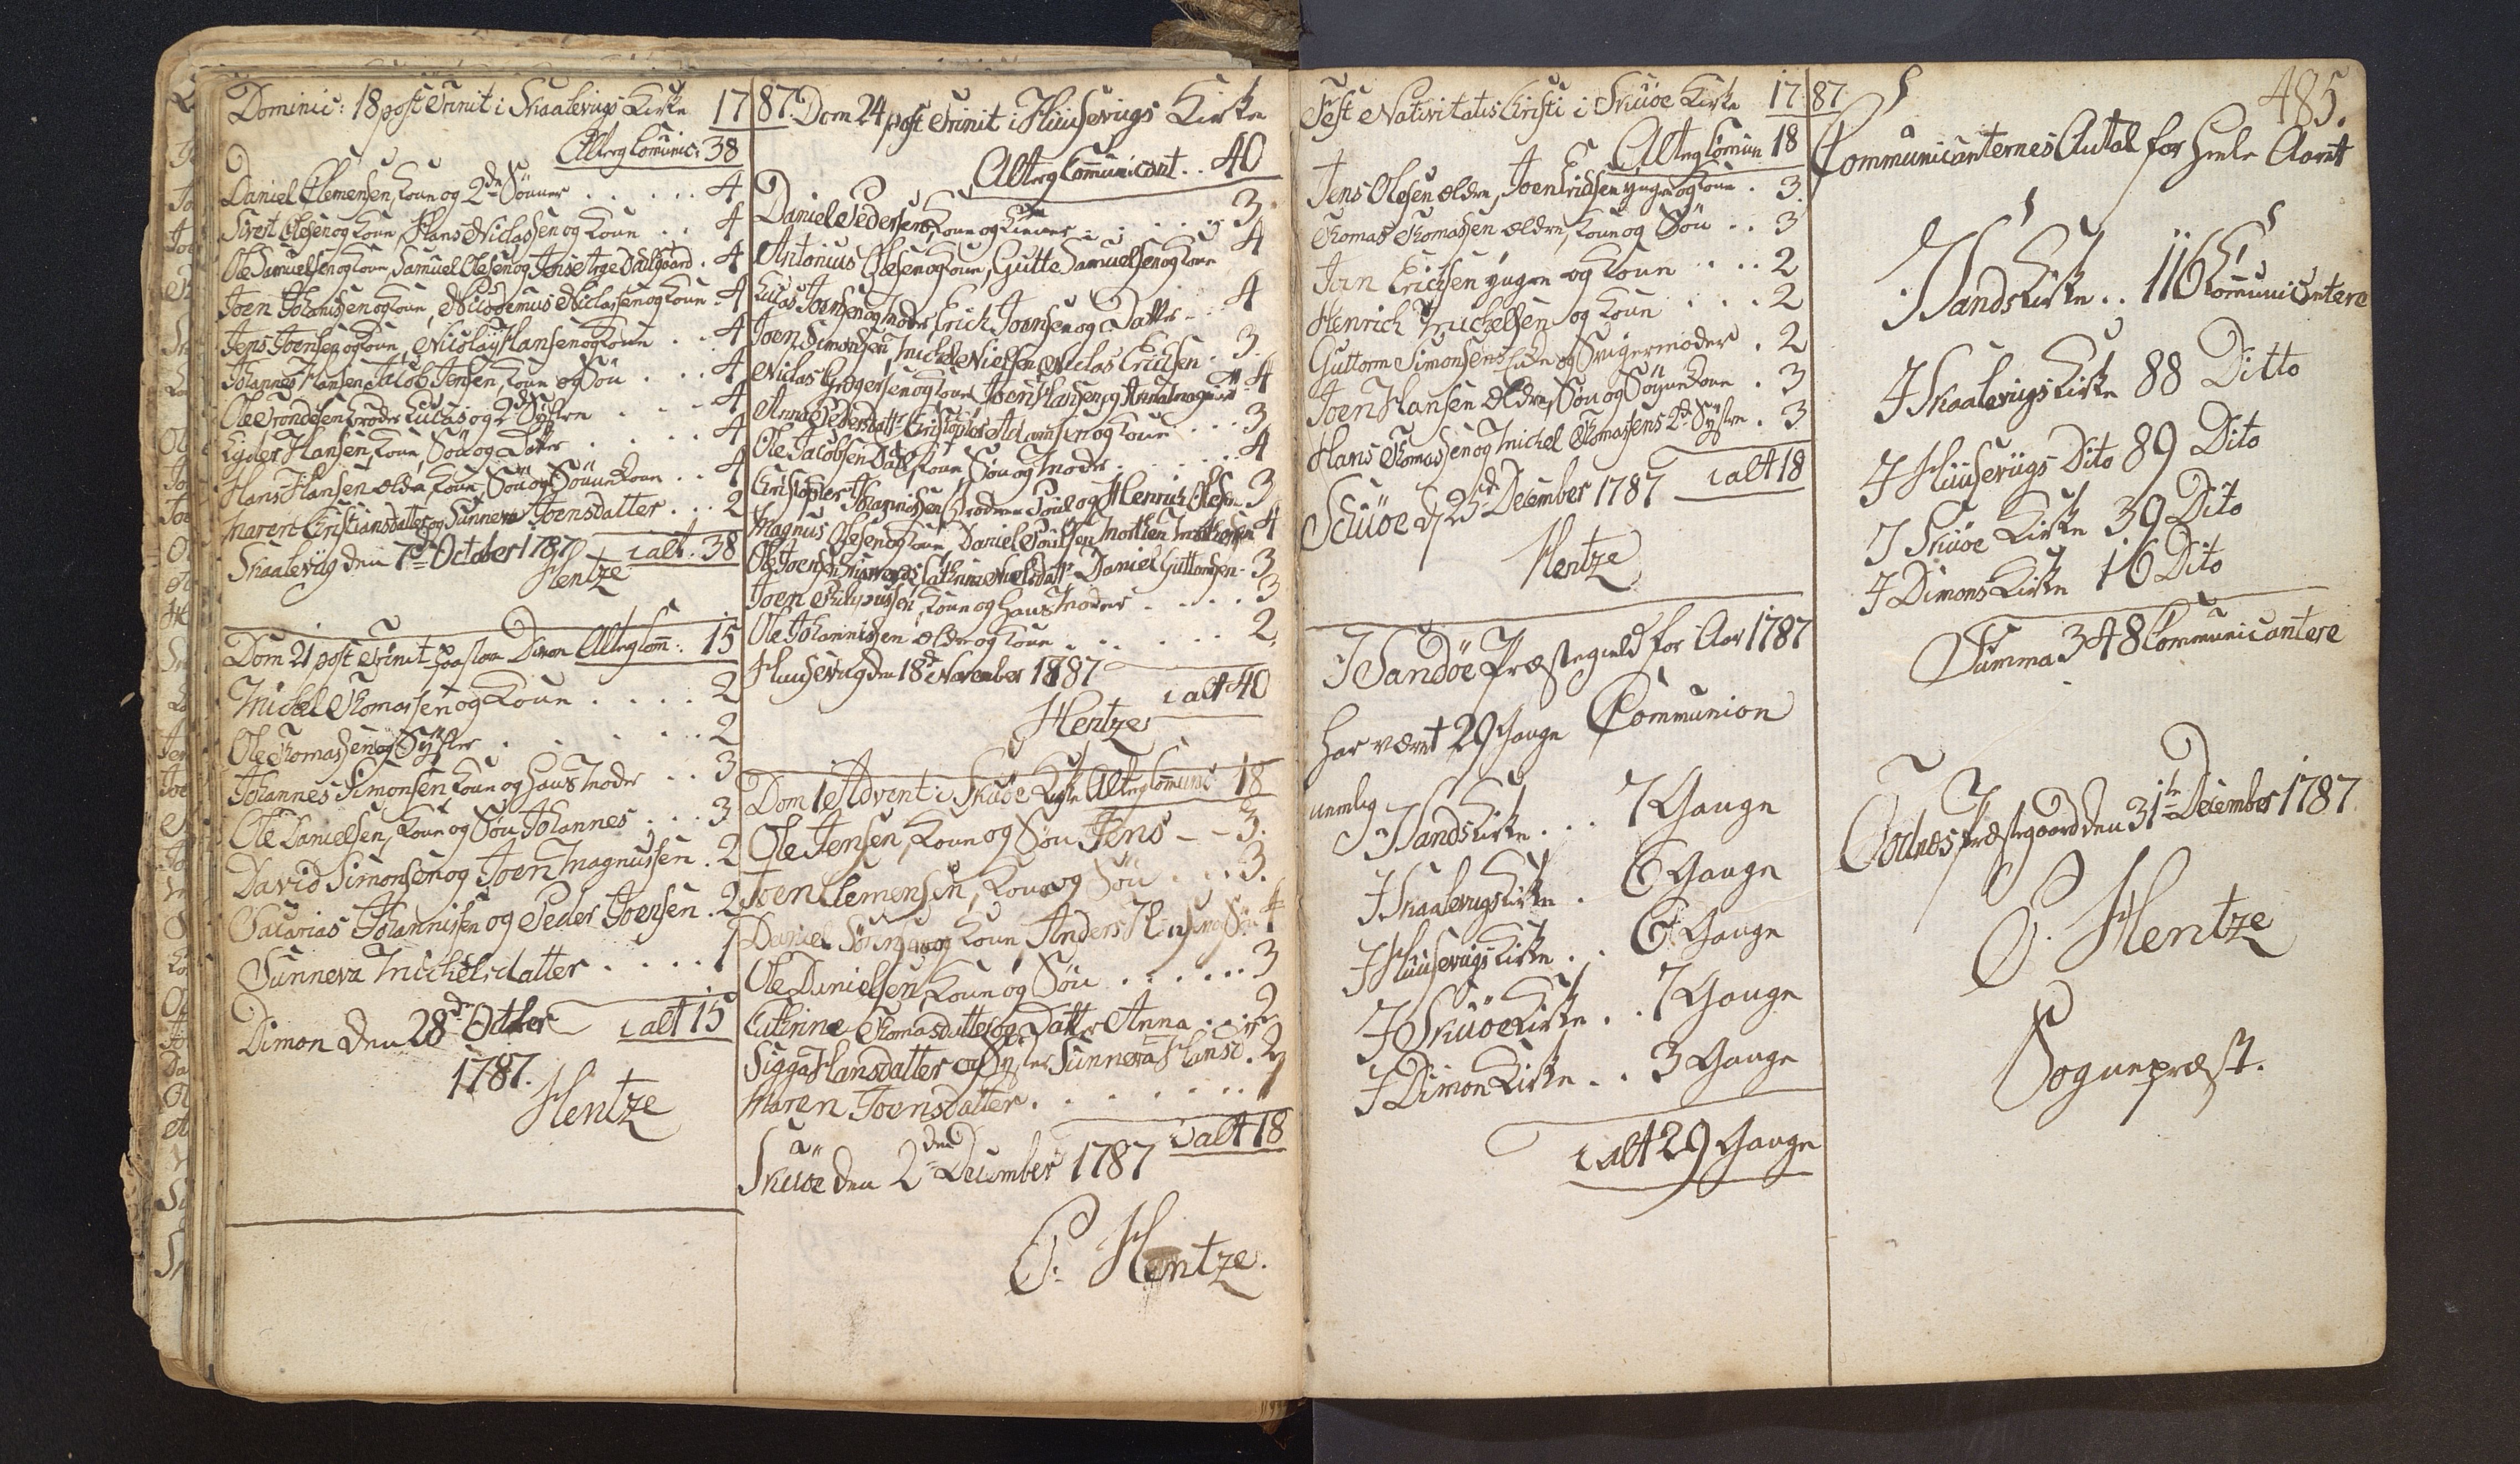 Dominic: 18 post Trinit i Skaalevigs Kirke 1787
Alterg Com̄unic: 38
Daniel Clemensen, Kone og 2de Sönner . . . . . 4
Sivert Olesen og Kone, Hans Niclassen og Kone . . 4
Ole Samuelsen og Kone, Samuel Olesen og Jens Arge Dalsgaard . 4
Joen Johannissen og Kone, Nicodemus Niclassen og Kone . 4
Jens Joensen og Kone, Nicolay Hansen og Kone . . 4
Johannes Hansen, Jacob Jensen, Kone og Sön . . . 4
Ole Trondesen, Broder Lucas og 2de Sÿstre . . . . 4
Eyder Hansen, Kone, Sön og Datter . . . . . 4
Hans Hansen ældre, Kone, Sön og Sönne Kone . . 4
Maren Christiansdatter og Sunneva Joensdatter . . . 2
Skaalevig den 7de October 1787 i alt . 38
Hentze
Dom 21 post Trinit paa store Dimon Alterg Com̄: 15
Michel Thomassen og Kone . . . . 2
Ole Thomassen og Sÿster . . . . . 2
Johannes Simonsen Kone og hans Moder . . 3
Ole Danielsen, Kone og Sön Johannes . . . 3
David Simonsen og Joen Magnussen . 2
Sacarias Johannissen og Peder Joensen . 2
Sunneva Michelsdatter . . . . 1
Dimon den 28de Octber i alt 15
1787.
Hentze
Dom 24 post Trinit i Huusevigs Kirke
Alterg Com̄unicant . . 40
Daniel Pedersen, Kone og . . . . . 3
Antonius Olesen og Kone, Gutte Samuelsen og Kone 4
Lucas Joensen og Moder, Erich Joensen og Datter . . . 4
Joen Simonsen, Michel Nielsen, Niclas Erichsen . 3
Niclas Gregersen og Kone, Joen Hansen og 4
Anna Pedersdatt: Christopher Adamsen og Kone . . . 3
Ole Jacobsen Dall, Kone, Sön og Moder . . . . . 4
Christopher Johannissen, Broder Poul og Henrich Olesen 3
Magnus Olesen og Kone, Daniel Poulsen, Morten 4
Ole Joensen Catrine Nielsdatt: Daniel Guttormsen . 3
Joen Philipussen, Kone og hans Moder . . . . . 3
Ole Johannissen ældre og Kone . . . . . . 2.
Huusevig den 18de November 1787
i alt 40
Hentze
Dom 1 Advent i Skuöe Kirke Alterg Com̄unic 18
Ole Jensen, Kone og Sön Jens - - 3.
Joen Clemensen, Kone og Sön . . . 3.
Daniel og Kone, Anders Hansen og Sön 4
Ole Danielsen, Kone og Sön . . . . . . 3
Catrine Thomasdatter og Datter Anna . . . 2
Sigga Hansdatter og Sÿster Sunneva Hansd. 2
Maren Joensdatter . . . . . . . 1
i alt 18
Skuöe den 2den December 1787
P: Hentze.
Fest Nativitatis Christi i Skuöe Kirke 1787
Alterg Com̄un 18
Jens Olesen ældre, Joen Erichsen yngre og Kone . 3.
Thomas Thomassen ældre, Kone og Sön . . 3
Joen Erichsen yngre og Kone . . . 2
Henrich Michelsen og Kone . . . 2
Guttorm Simonsens Enke og Svigermoder . 2
Joen Hansen ældre, Sön og Sönne Kone . 3
Hans Thomassen og Michel Thomassens 2de Sÿstre . 3
i alt 18
Schüöe d 25de December 1787
Hentze
I Sandöe Præstegield for Aar 1787
har været 29 Gange Communion
nemlig I Sands Kirke . . . 7 Gange
I Skaalevigs Kirke . 6 Gange
I Huusevigs Kirke . . 6 Gange
I Skuöe Kirke . . 7 Gange
I Dimon Kirke . . 3 Gange
i alt 29 Gange
485.
Communicanternes Antal for hele Aaret
I Sands Kirke . . 116 Com̄unicantere
I Skaalevigs Kirke 88 Ditto
I Huusevigs Dito 89 Dito
I Skuöe Kirke 39 Dito
I Dimons Kirke 16 Dito
Summa 348 Communicantere
Todnæs Præstegaard den 31te December 1787
P. Hentze
Sognepræst.